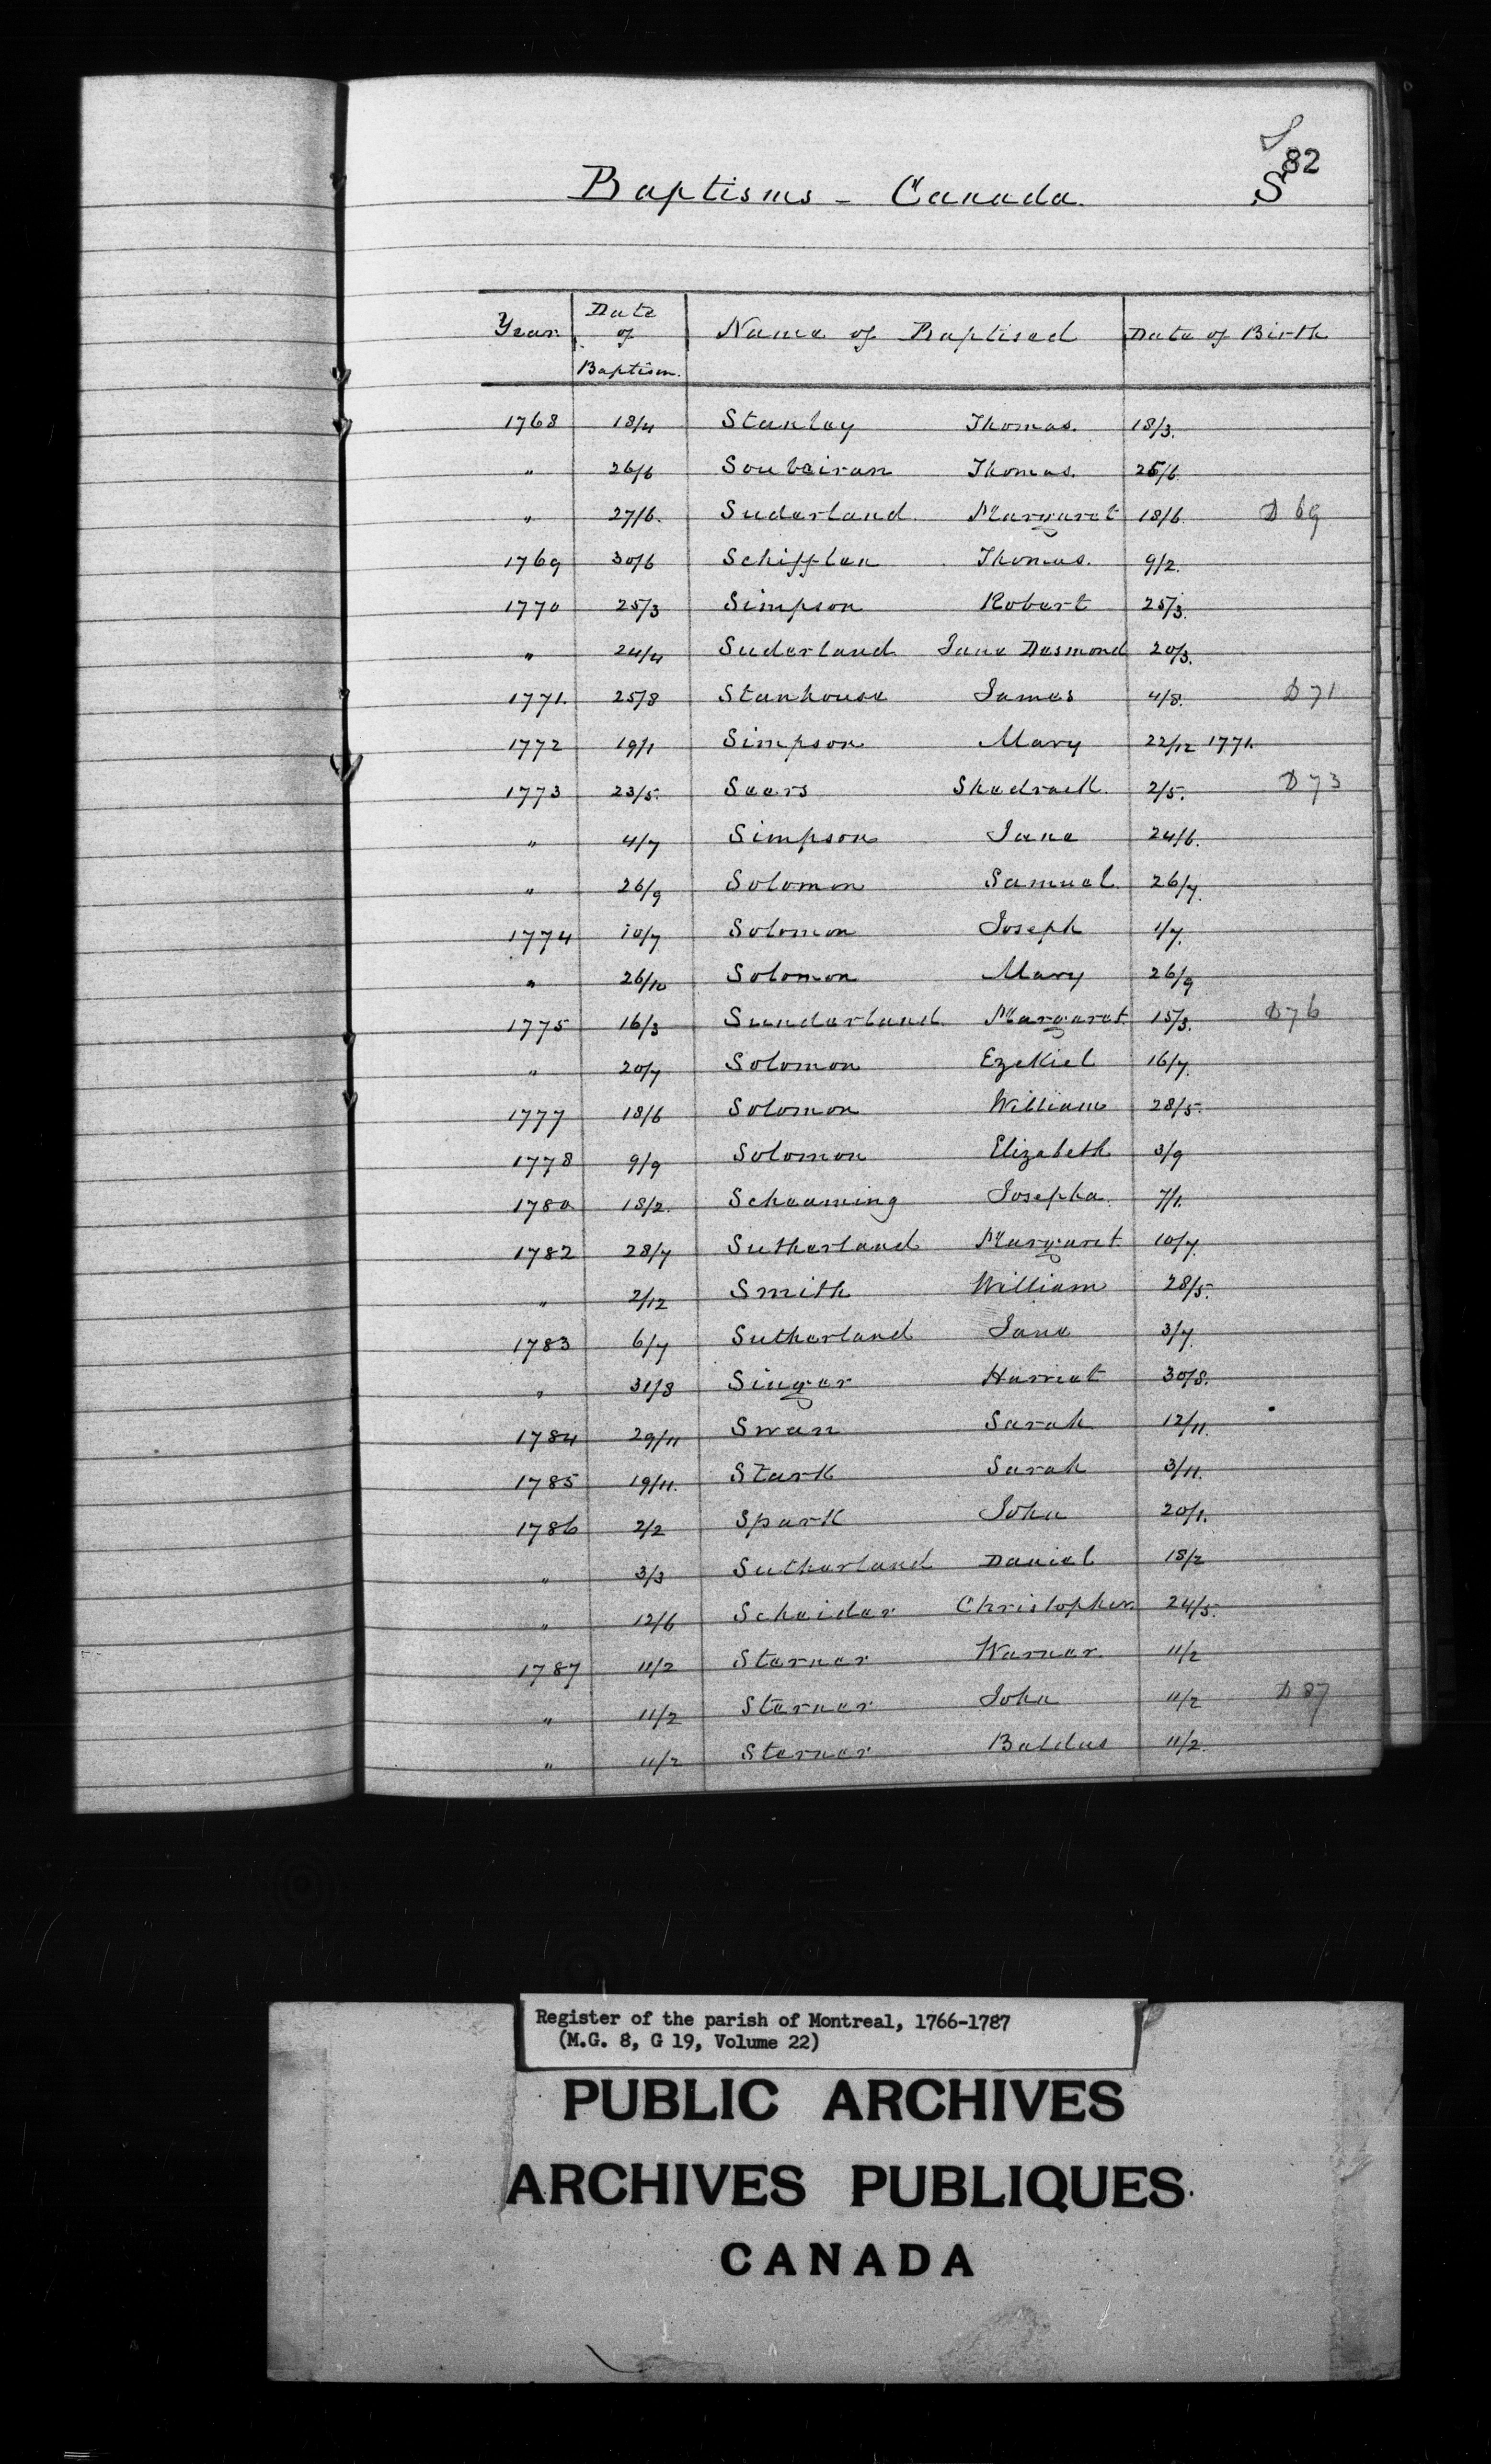 S
82
S
Baptisms - Canada.
Year. Date of Baptism. Name of Baptised Date of Birth
1768 18/4 Stanley Thomas. 18/3.
" 26/6 Soubeiran Thomas. 25/6.
" 27/6. Suderland. Margaret 18/6. D 69
1769 30/6 Schifflen Thomas. 9/2.
1770 25/3 Simpson Robert 25/3.
" 24/4 Suderland Jane Desmond 20/3.
1771. 25/8 Stenhouse James 4/8. D 71
1772 19/1 Simpson Mary 22/12 1771.
1773 23/5. Seers Shadrack. 2/5. D 73
" 4/7 Simpson Jane 24/6.
" 26/9 Solomon Samuel. 26/7.
1774 10/7 Solomon Joseph 1/7.
" 26/10 Solomon Mary 26/9
1775 16/3 Sunderland. Margaret. 15/3. D 76
" 20/7 Solomon Ezekiel 16/7.
1777 18/6 Solomon William 28/5.
1778 9/9 Solomon Elizabeth 3/9
1780 18/2. Schaaming Josepha. 7/1.
1782 28/7 Sutherland Margaret. 10/7.
" 2/12 Smith William 28/5.
1783 6/7 Sutherland Jane 3/7.
" 31/8 Singer Harriet 30/8.
1784 29/11 Swan Sarah 12/11.
1785 19/11. Stark Sarah 3/11.
1786 2/2 Spark John 20/1.
" 3/3 Sutherland Daniel 18/2
" 12/6 Scheider Christopher. 24/5.
1787 11/2 Sterner Warner. 11/2
" 11/2 Sterner John 11/2 D 87
" 11/2 Sterner Baldus 11/2.
Register of the parish of Montreal, 1766-1787
(M.G. 8, G 19, Volume 22)
PUBLIC ARCHIVES
ARCHIVES PUBLIQUES
CANADA